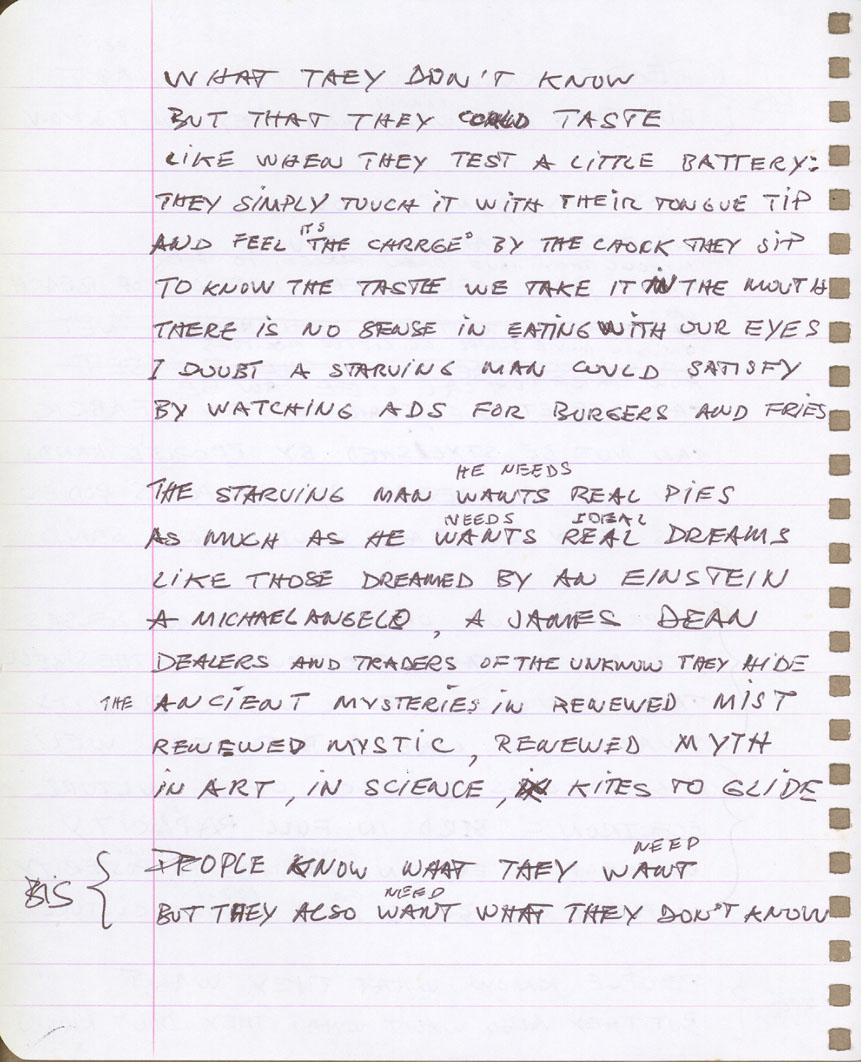 WHAT THEY DON'T KNOW
BUT THAT THEY COULD TASTE
LIKE WHEN THEY TEST A LITTLE BATTERY:
THEY SIMPLY TOUCH IT WITH THEIR TONGUE TIP
ITS
AND FEEL "THE CHARGE" BY THE CHOCK THEY SIP
TO KNOW THE TASTE WE TAKE IT IN THE MOUTH
THERE IS NO SENSE IN EATING WITH OUR EYES
I DOUBT A STARVING MAN COULD SATISFY
BY WATCHING ADS FOR BURGERS AND FRIES
HE NEEDS
THE STARVING MAN WANTS REAL PIES
NEEDS IDEAL
AS MUCH AS HE WANTS REAL DREAMS
LIKE THOSE DREAMED BY AN EINSTEIN
A MICHAELANGELO, A JAMES DEAN
DEALERS AND TRADERS OF THE UNKNOW THEY HIDE
THE ANCIENT MYSTERIES IN RENEWED MIST
RENEWED MYSTIC, RENEWED MYTH
IN ART, IN SCIENCE, IN KITES TO GLIDE
NEED
PEOPLE KNOW WHAT THEY WANT
BIS
NEED
BUT THEY ALSO WANT WHAT THEY DON'T KNOW